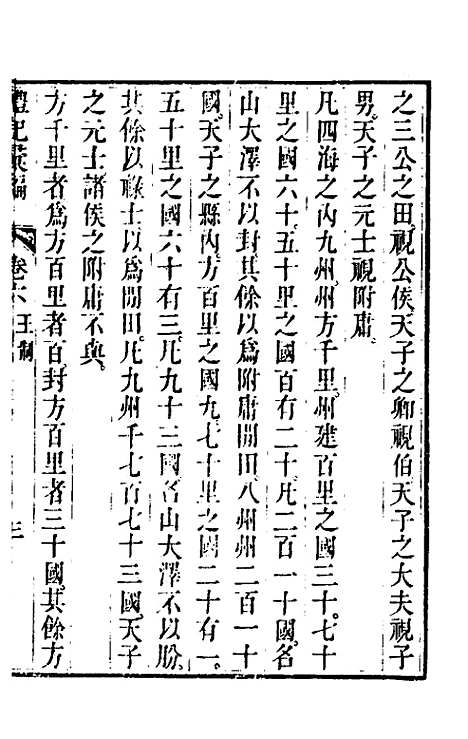 之三公之田視公侯天子之卿視伯天子之大夫視子
男天子之元士視附庸
凡四海之內九州州方千里州建百里之國三十七十
里之國六十五十里之國百有二十凡二百一十國名
山大澤不以封其餘以爲附庸閒田八州州二百一十
國天子之縣內方百里之國九七十里之國二十有一
五十里之國六十有三凡九十三國名山大澤不以朌
其餘以祿士以爲閒田凡九州千七百七十三國天子
之元士諸侯之附庸不與
方千里者爲方百里者百封方百里者三十國其餘方
禮記彙編 卷六 王制 三